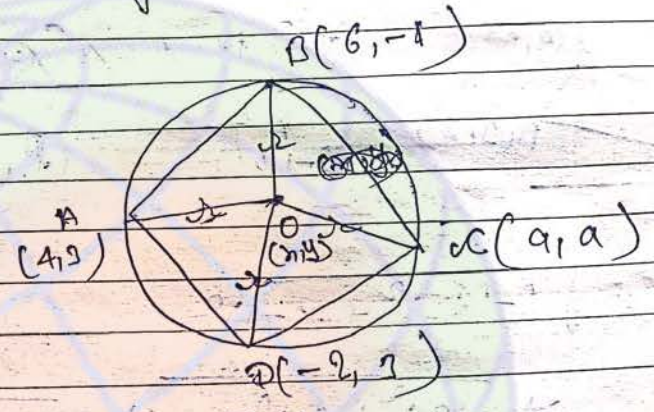 B(6,-1)
r
A
(4,3)
r
O
(x,y)
r
C(a,a)
r
D(-2,3)